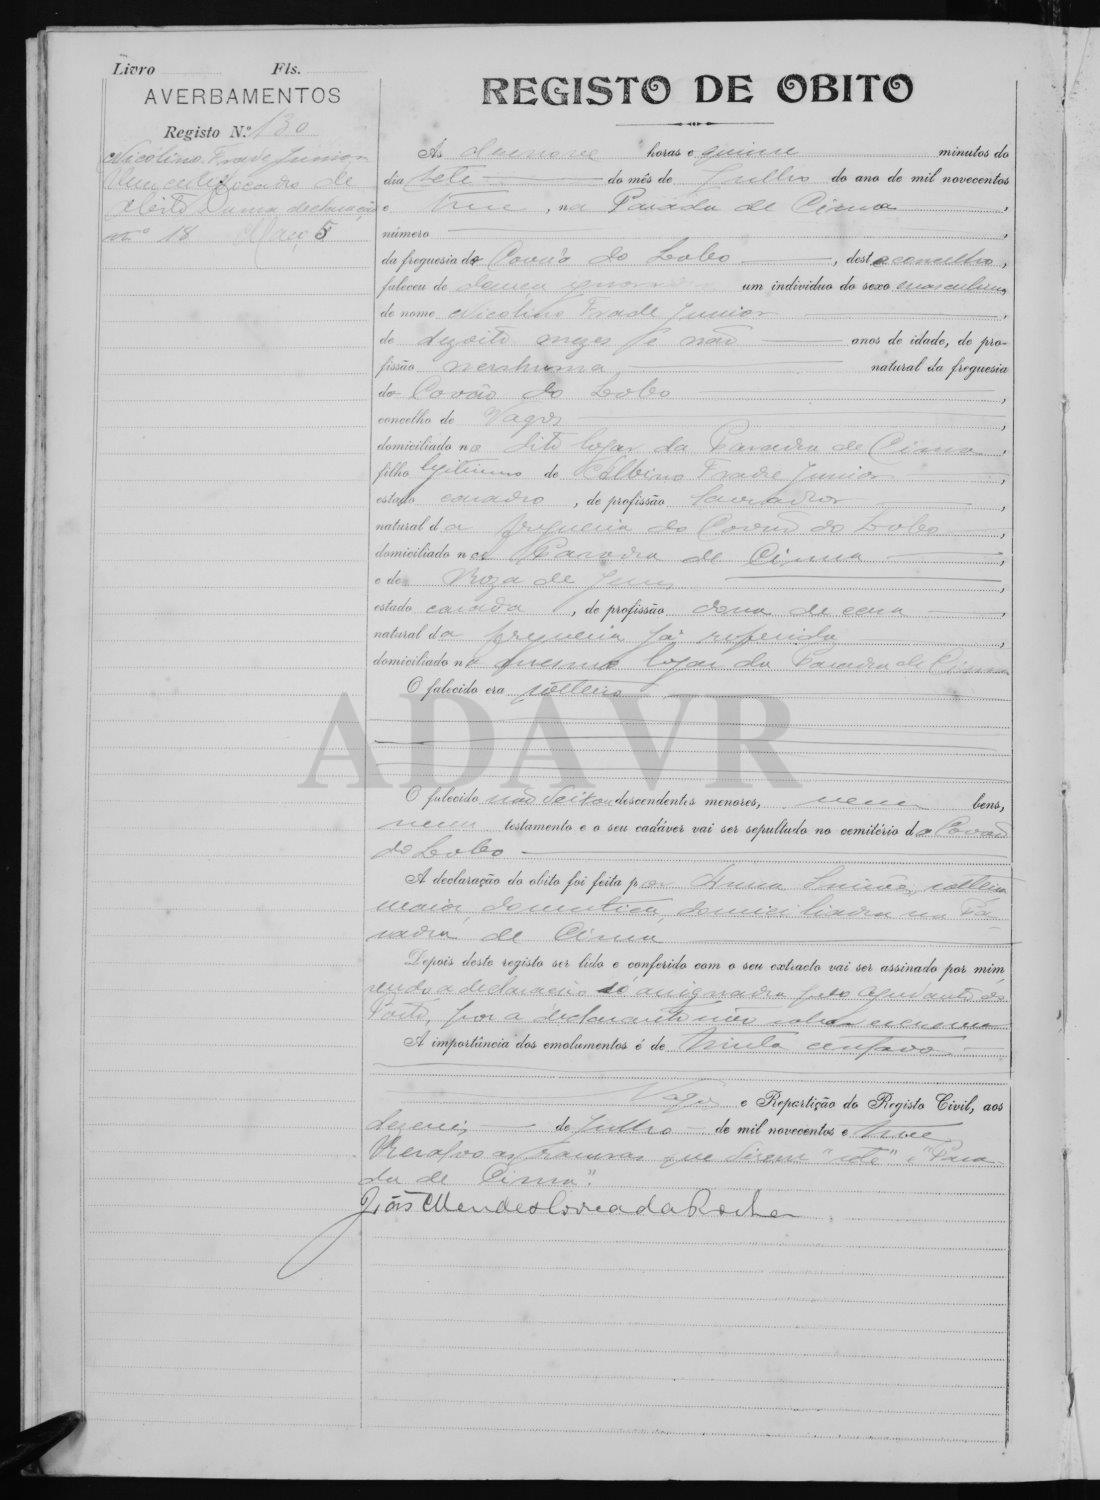 Livro Fls.
AVERBAMENTOS
Registo N.º 130
Nicolino Frade Junior
Um certificado de
obito e uma declaração
nº 18 Março 5
REGISTO DE OBITO
Ás dezenove horas e quinze minutos do
dia sete do mês de Julho do ano de mil novecentos
e treze, na Parada de Cima,
número
da freguesia do Covão do Lobo, deste concelho,
faleceu de um individuo do sexo masculino
de nome Nicolino Frade Junior
de dezoito mezes se não anos de idade, de pro-
fissão nenhuma, natural da freguesia
do Covão do Lobo,
concelho de Vagos,
domiciliado no dito logar da Parada de Cima,
filho legitimo de Albino Frade Junior,
estado casado, de profissão lavrador,
natural da freguesia do Covão do Lobo,
domiciliado na Parada de Cima,
e de Roza de Jesus,
estado casada, de profissão dona de casa,
natural da freguesia já referida
domiciliado no mesmo logar da Parada de Cima
O falecido era solteiro
ADAVR
O falecido não deixou descendentes menores, nem bens,
nem testamento e o seu cadáver vai ser sepultado no cemitério do Covão
do Lobo
A declaração do obito foi feita por Anna Simões, solteira
maior, domestica, domiciliada na Pa-
rada de Cima
Depois deste registo ser lido e conferido com o seu extracto vai ser assinado por mim
sendo a declaração só assignada pelo ajudante do
Posto, por a declarante não saber escrever
A importância dos emolumentos é de trinta centavos
Vagos e Repartição do Registo Civil, aos
de Julho de mil novecentos e treze
Resalvo as rasuras que dizem "sete" e "Para-
da de Cima".
João Mendes Correa da Rocha